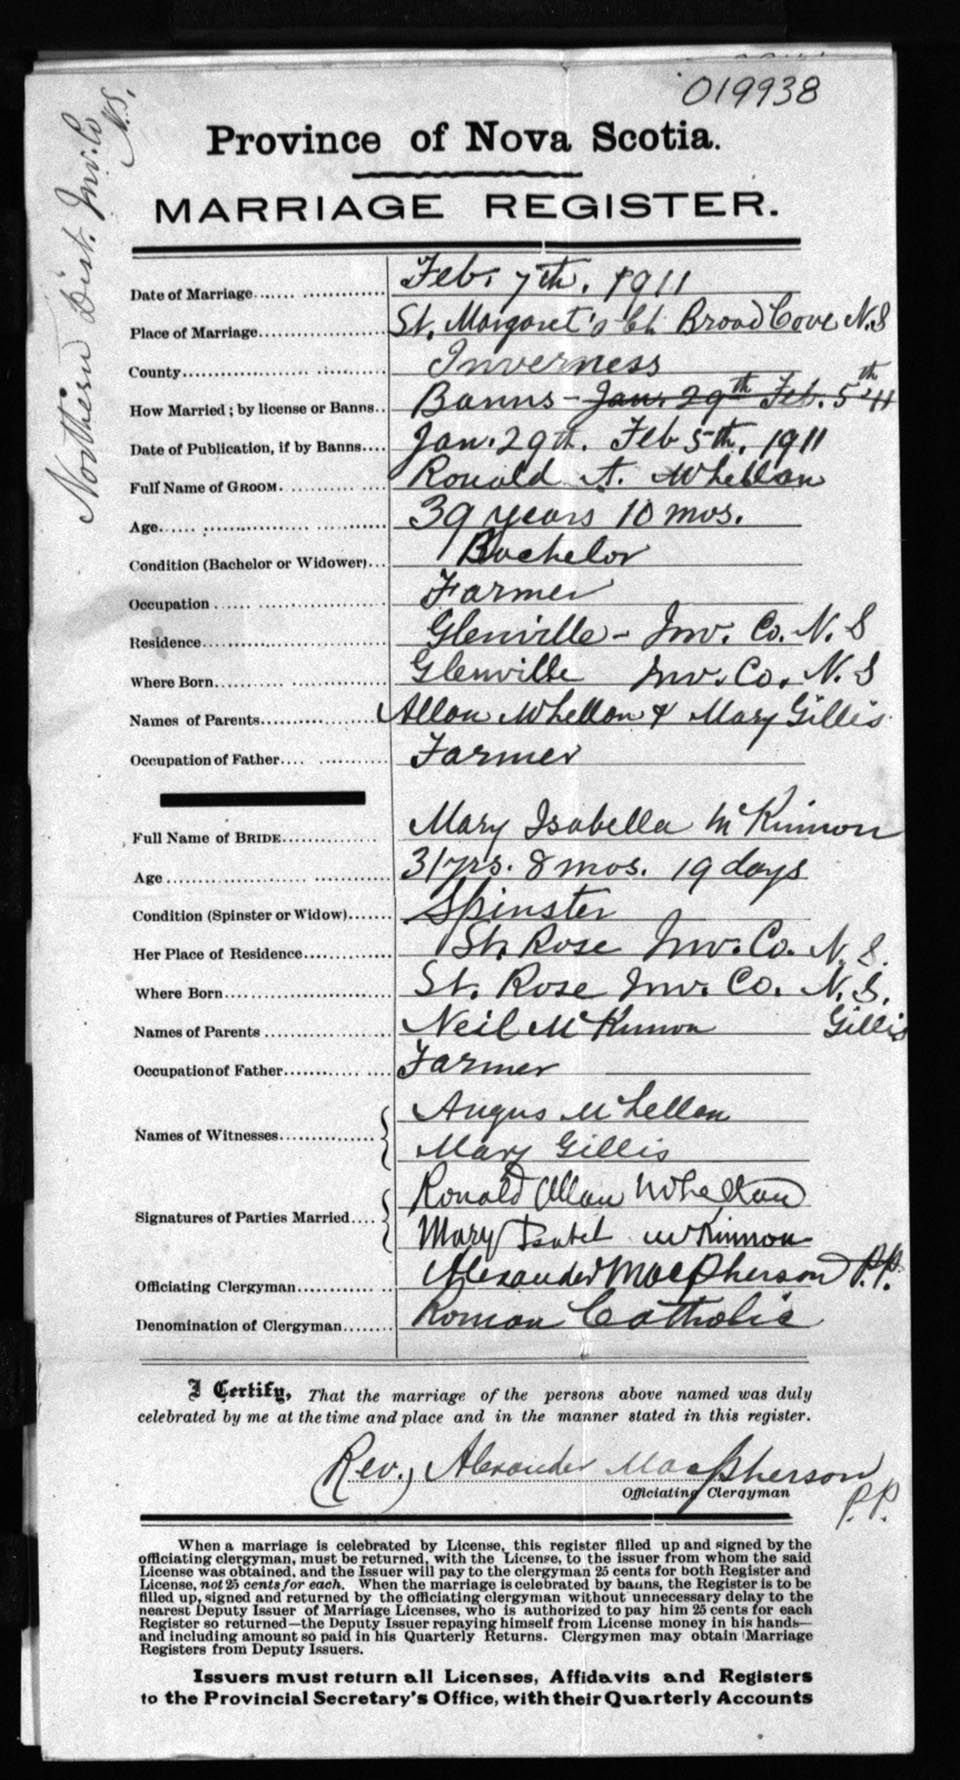 019938
Northern Dist. Inv. Co N.S.
Province of Nova Scotia.
MARRIAGE REGISTER.
Date of Marriage Feb. 7th. 1911
Place of Marriage St. Margaret's Ch Broad Cove N.S
County Inverness
How Married; by license or Banns Banns - Jan. 29th Feb. 5th 11
Date of Publication, if by Banns Jan. 29th. Feb 5th. 1911
Full Name of GROOM Ronald A. McLellan
Age 39 years 10 mos.
Condition (Bachelor or Widower) Bachelor
Occupation Farmer
Residence Glenville - Inv. Co. N. S
Where Born Glenville Inv. Co. N. S
Names of Parents Allan McLellan & Mary Gillis
Occupation of Father Farmer
Full Name of BRIDE Mary Isabella McKinnon
Age 31 yrs. 8 mos. 19 days
Condition (Spinster or Widow) Spinster
Her Place of Residence St. Rose Inv. Co. N. S.
Where Born St. Rose Inv. Co. N. S.
Names of Parents Neil McKinnon Gillis
Occupation of Father Farmer
Names of Witnesses Angus McLellan
Mary Gillis
Signatures of Parties Married Ronald Allan McLellan
Mary Isabel McKinnon
Officiating Clergyman Alexander MacPherson P.P.
Denomination of Clergyman Roman Catholic
I Certify, That the marriage of the persons above named was duly
celebrated by me at the time and place and in the manner stated in this register.
(Rev.) Alexander MacPherson
Officiating Clergyman
P.P.
When a marriage is celebrated by License, this register filled up and signed by the
officiating clergyman, must be returned, with the License, to the issuer from whom the said
License was obtained, and the Issuer will pay to the clergyman 25 cents for both Register and
License, not 25 cents for each. When the marriage is celebrated by banns, the Register is to be
filled up, signed and returned by the officiating clergyman without unnecessary delay to the
nearest Deputy Issuer of Marriage Licenses, who is authorized to pay him 25 cents for each
Register so returned—the Deputy Issuer repaying himself from License money in his hands—
and including amount so paid in his Quarterly Returns. Clergymen may obtain Marriage
Registers from Deputy Issuers.
Issuers must return all Licenses, Affidavits and Registers
to the Provincial Secretary's Office, with their Quarterly Accounts